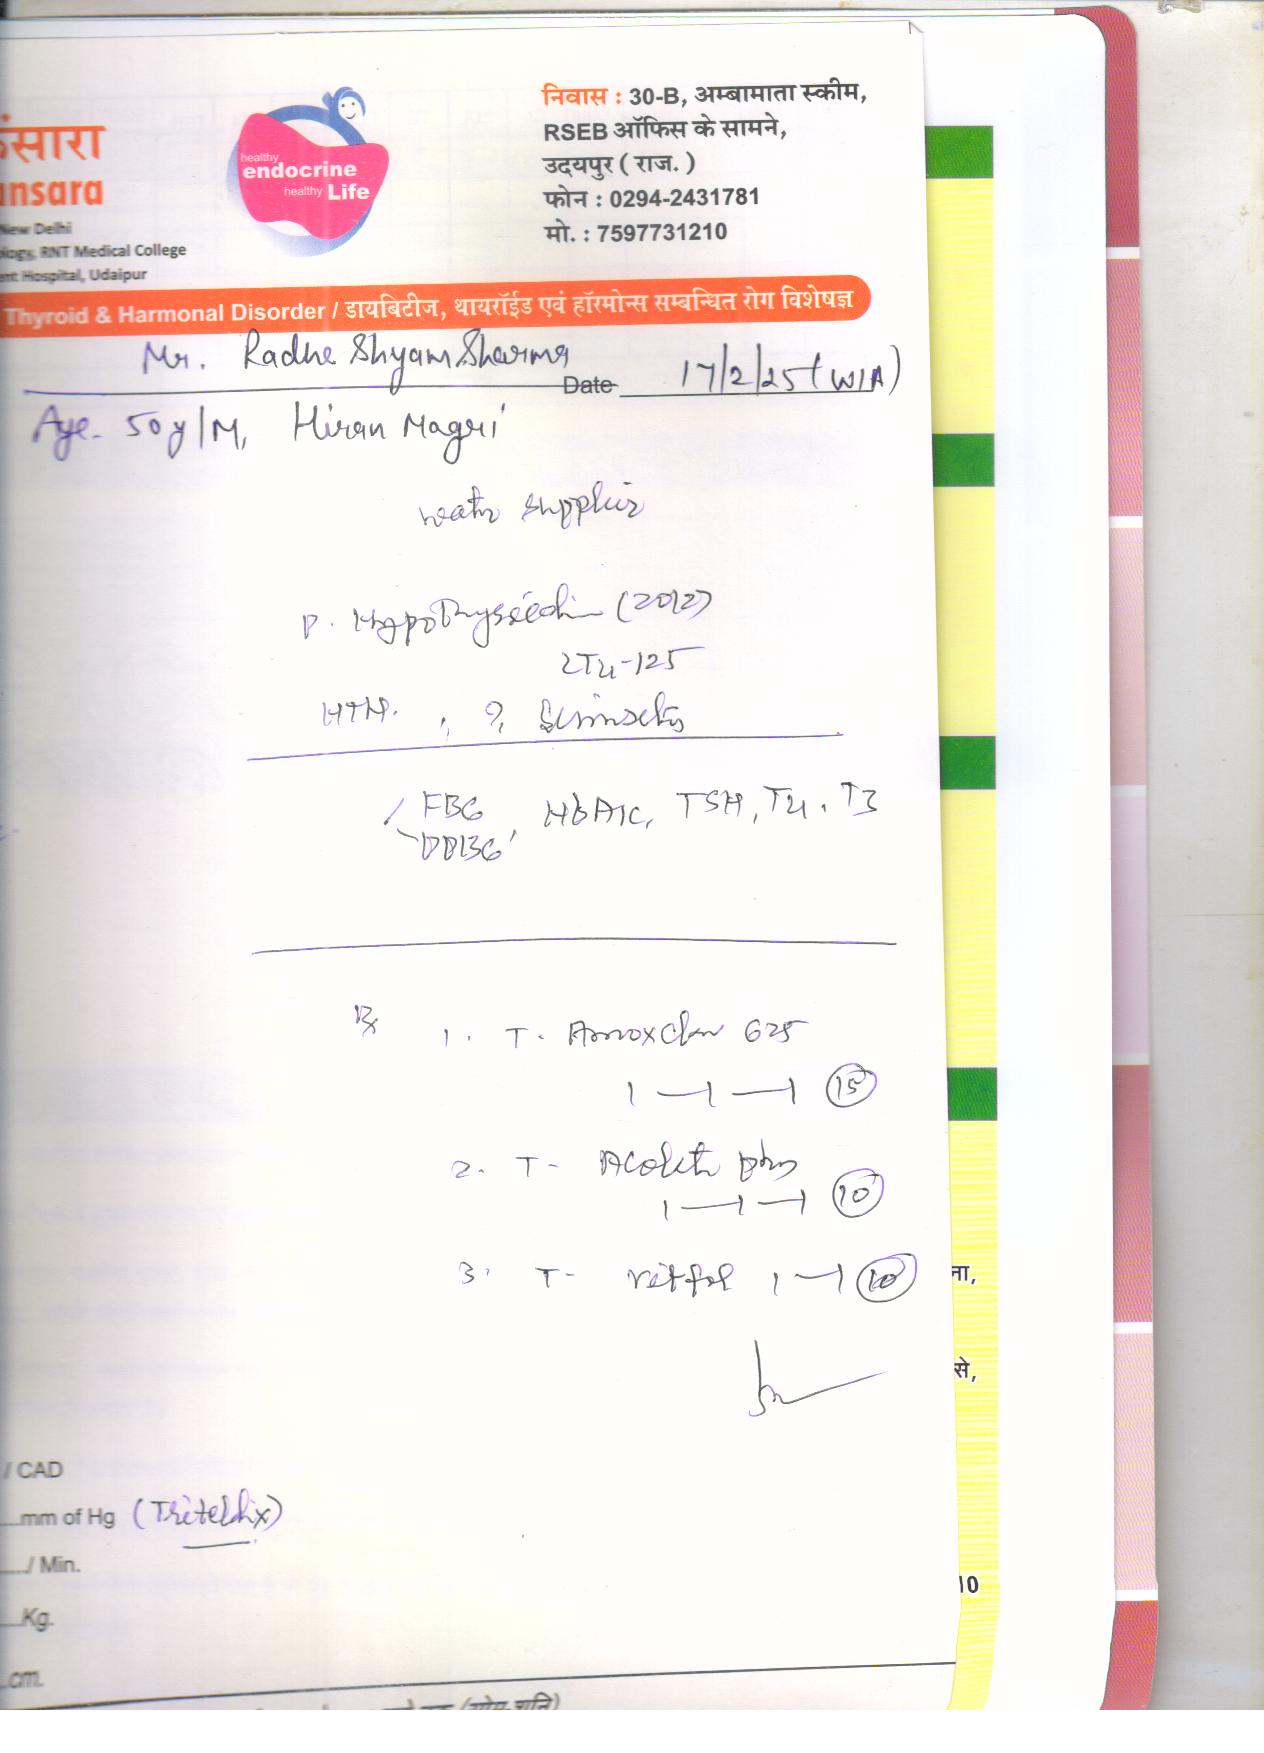 कंसारा
ansara
New Delhi
ology, RNT Medical College
ent Hospital, Udaipur
healthy
endocrine
healthy Life
निवास : 30-B, अम्बामाता स्कीम,
RSEB ऑफिस के सामने,
उदयपुर ( राज. )
फोन : 0294-2431781
मो. : 7597731210
Thyroid & Harmonal Disorder / डायबिटीज, थायरॉईड एवं हॉरमोन्स सम्बन्धित रोग विशेषज्ञ
Mr. Radhe Shyam Sharma
Date 17/2/25 (W/A)
Age. 50y/M, Hiran Magri
water supplier
P. Hypothyroidi (2012)
LT4-125
HTN. , ?
FBG
PPBG , HbA1c, TSH, T4, T3
Rx
1. T. Amoxclav 625
1 — 1 — 1 (15)
2. T-
1 — 1 — 1 (10)
3. T- 1 — 1 (10)
ना,
से,
/ CAD
...mm of Hg
..../ Min.
...Kg.
.cm.
10